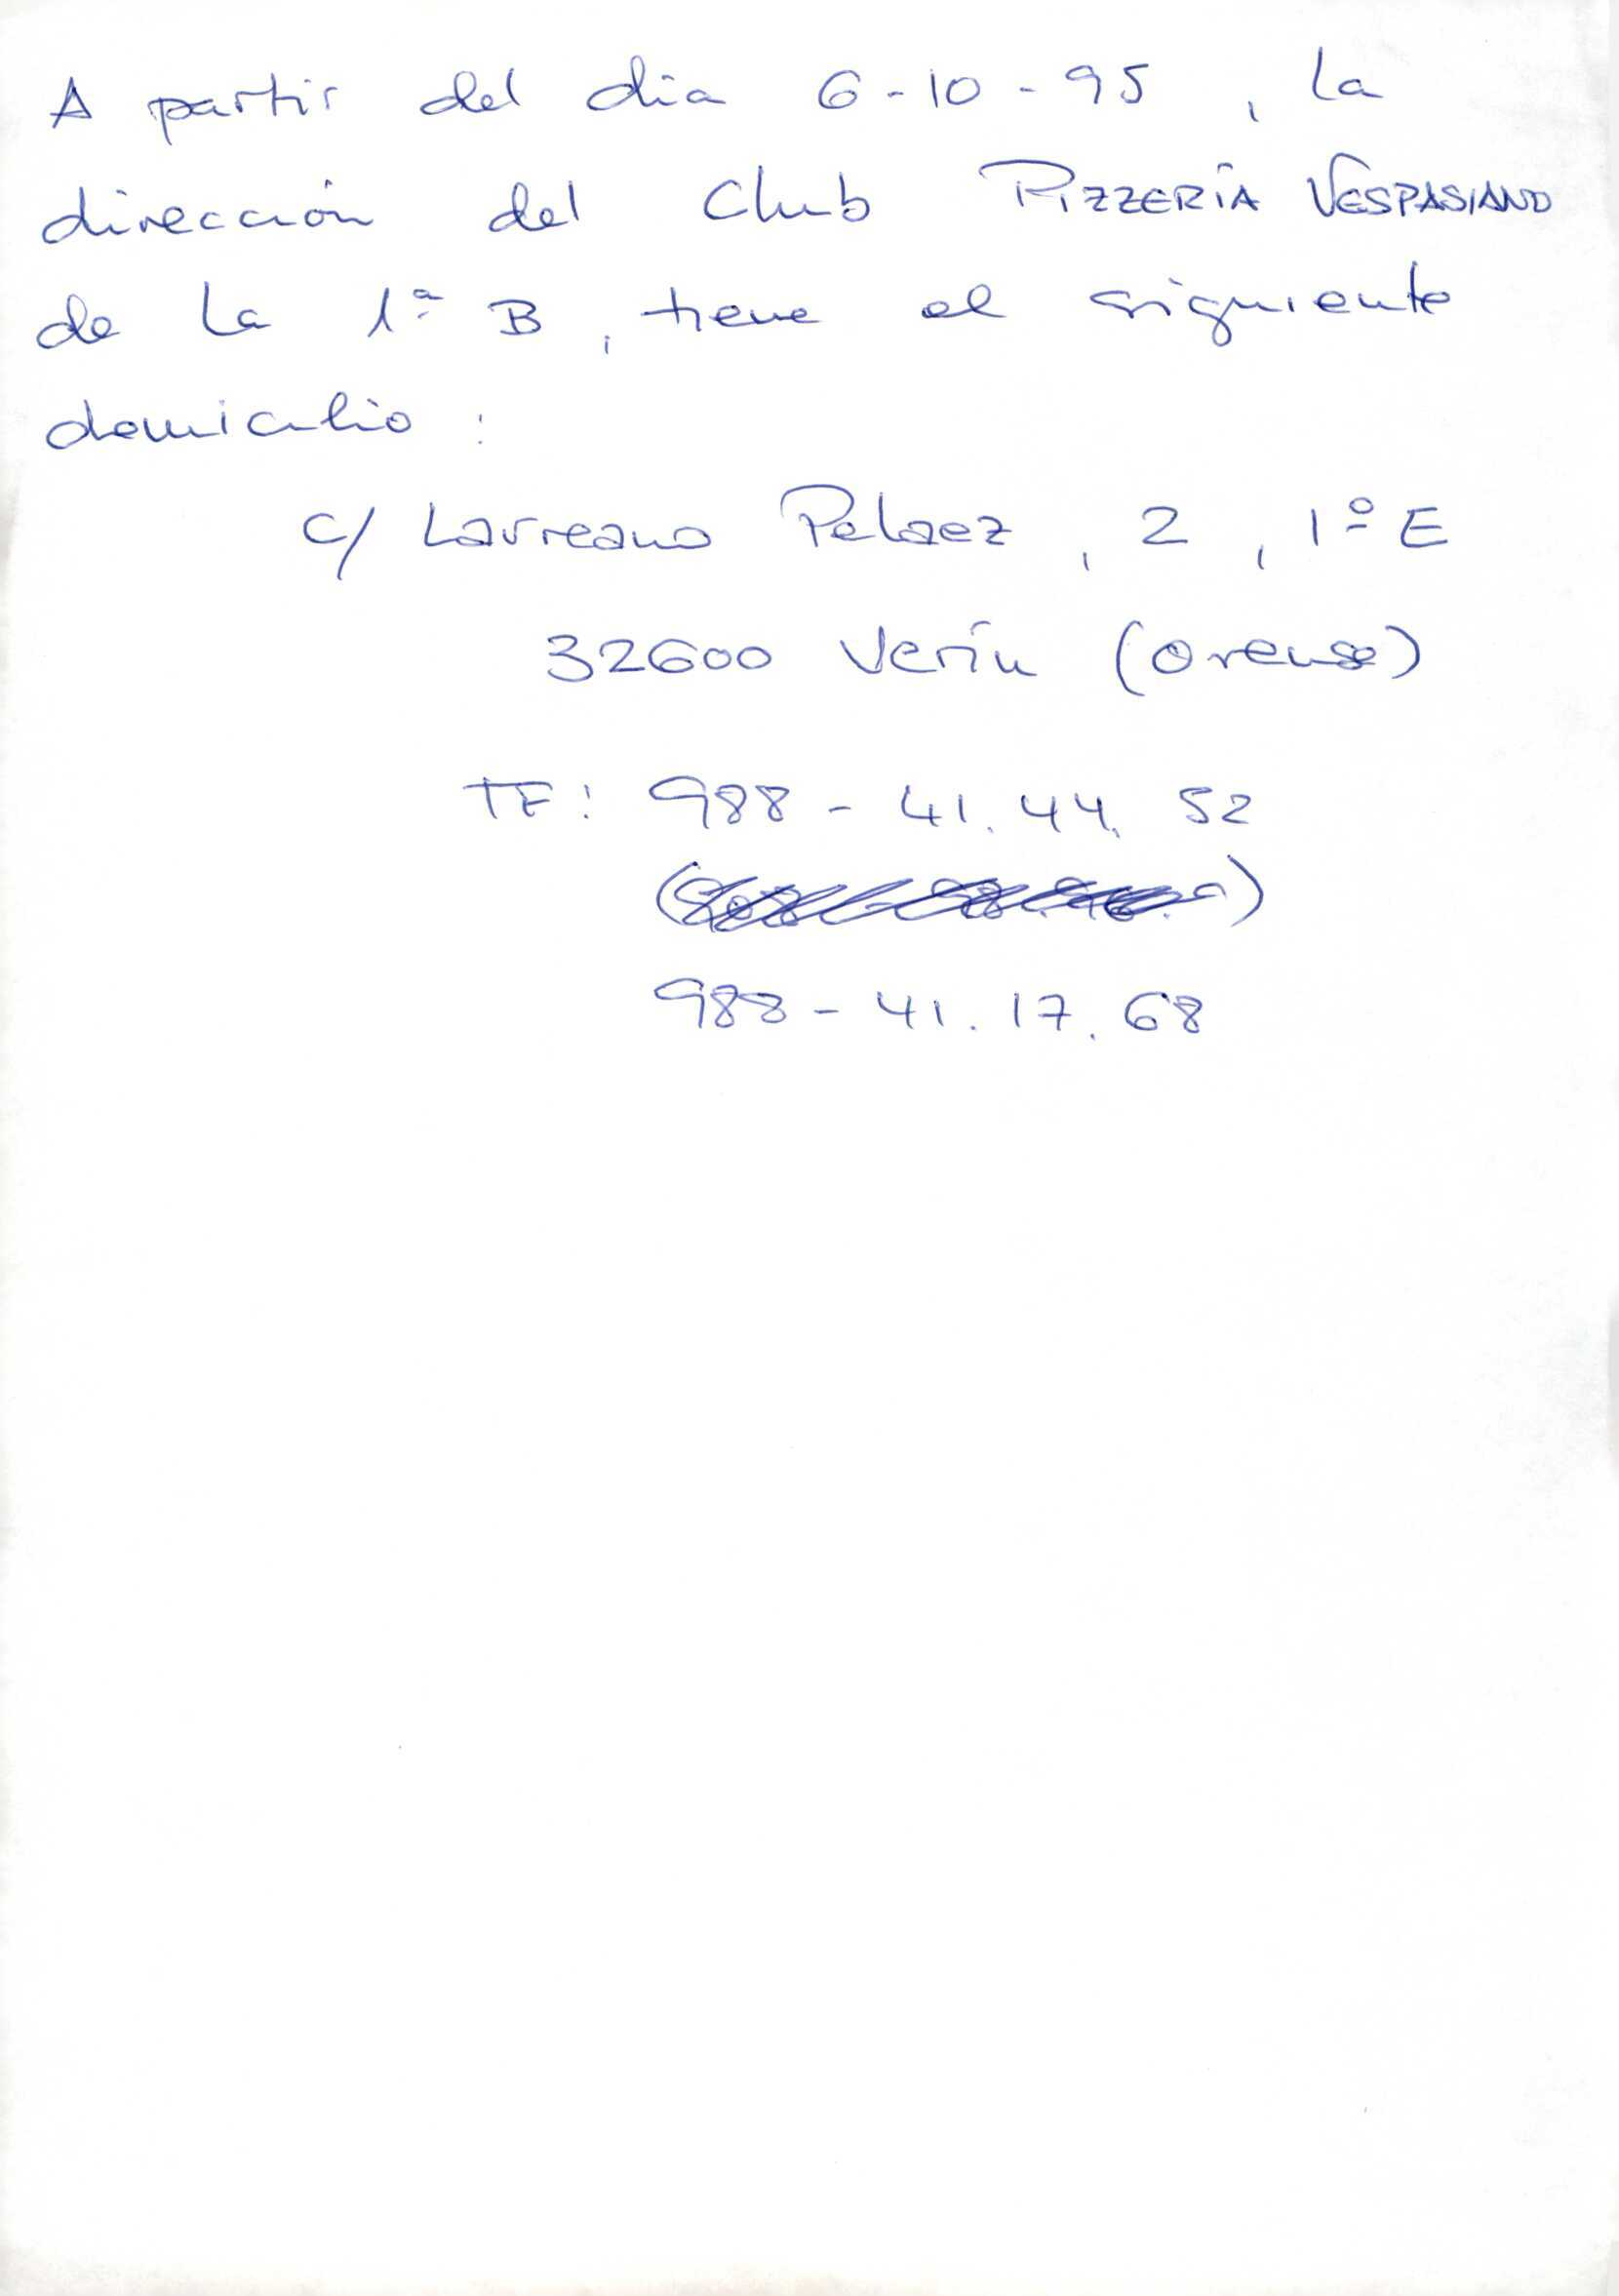 A partir del dia 6-10-95, la
dirección del Club PIZZERÍA VESPASIANO
de la 1ª B, tiene el siguiente
domicilio :
c/ Laureano Pelaez, 2, 1º E
32600 Verín (Orense)
TF: 988 - 41.44.52
988 - 41.17.68